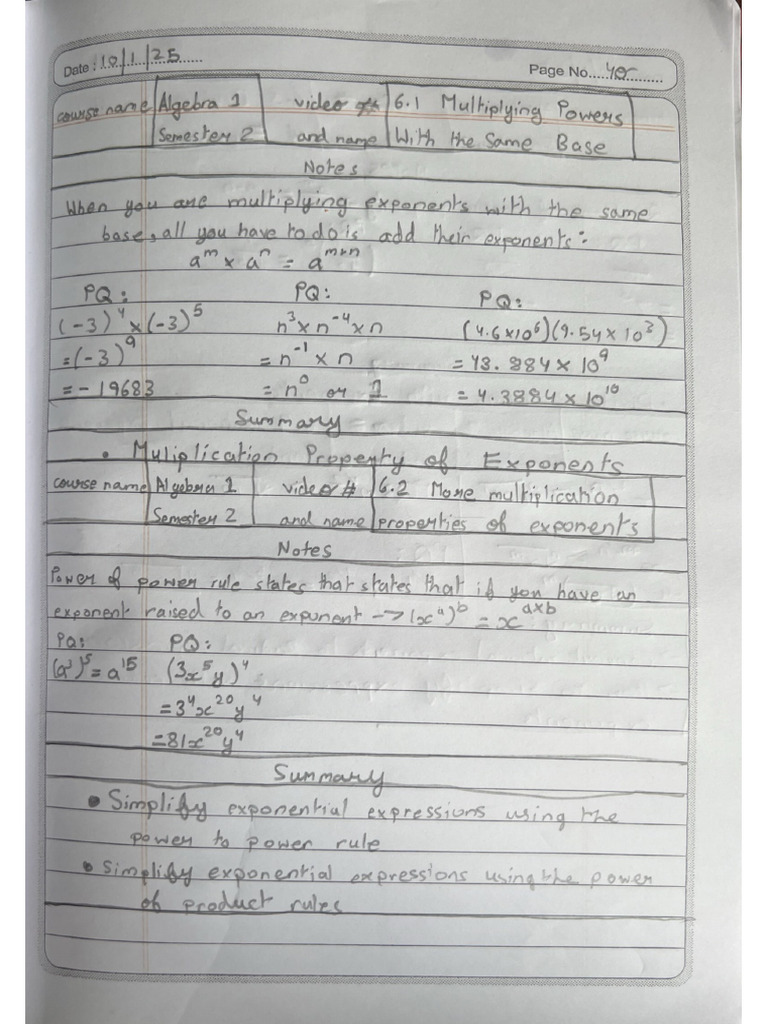 Date: 10/1/25 Page No. 40
course name Algebra 1 video # 6.1 Multiplying Powers
Semester 2 and name With the Same Base
Notes
When you are multiplying exponents with the same
base, all you have to do is add their exponents:
aᵐ × aⁿ = aᵐ⁺ⁿ
PQ: PQ: PQ:
(-3)⁴ × (-3)⁵ n³ × n⁻⁴ × n (4.6×10⁶)(9.54×10³)
=(-3)⁹ = n⁻¹ × n = 43.884 × 10⁹
= - 19683 = n⁰ or 1 = 4.3884 × 10¹⁰
Summary
• Muliplication Property of Exponents
course name Algebra 1 video # 6.2 More multiplication
Semester 2 and name properties of exponents
Notes
Power of power rule states that states that if you have an
exponent raised to an exponent → (xᵃ)ᵇ = xᵃˣᵇ
PQ: PQ:
(a³)⁵ = a¹⁵ (3x⁵y)⁴
=3⁴x²⁰y⁴
=81x²⁰y⁴
Summary
• Simplify exponential expressions using the
power to power rule
• Simplify exponential expressions using the power
of product rules